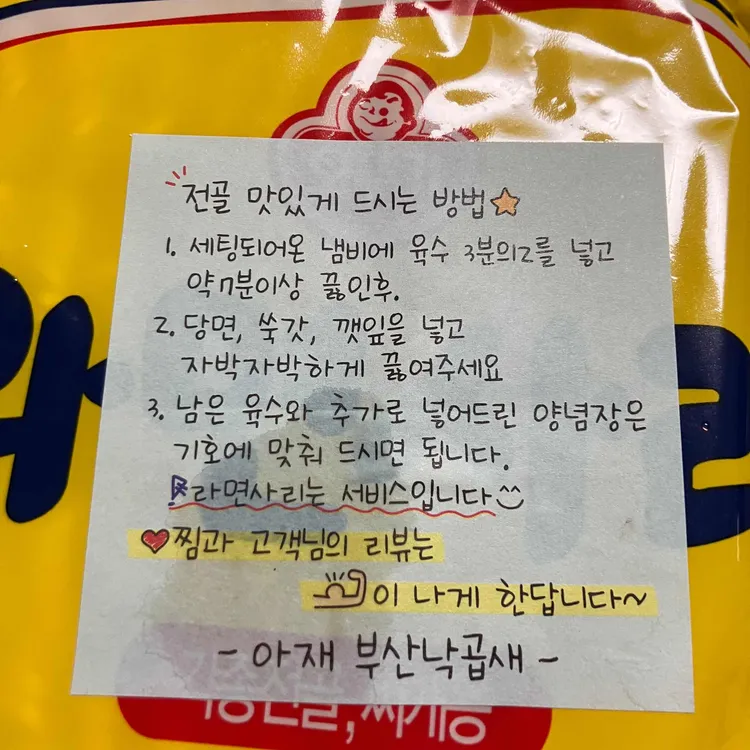 전골 맛있게 드시는 방법
1. 세팅되어온 냄비에 육수 3분의2를 넣고
약 7분이상 끓인후.
2. 당면, 쑥갓, 깻잎을 넣고
자박자박하게 끓여주세요
3. 남은 육수와 추가로 넣어드린 양념장은
기호에 맞춰 드시면 됩니다.
라면사리는 서비스입니다
찜과 고객님의 리뷰는
이 나게 한답니다~
- 아재 부산낙곱새 -